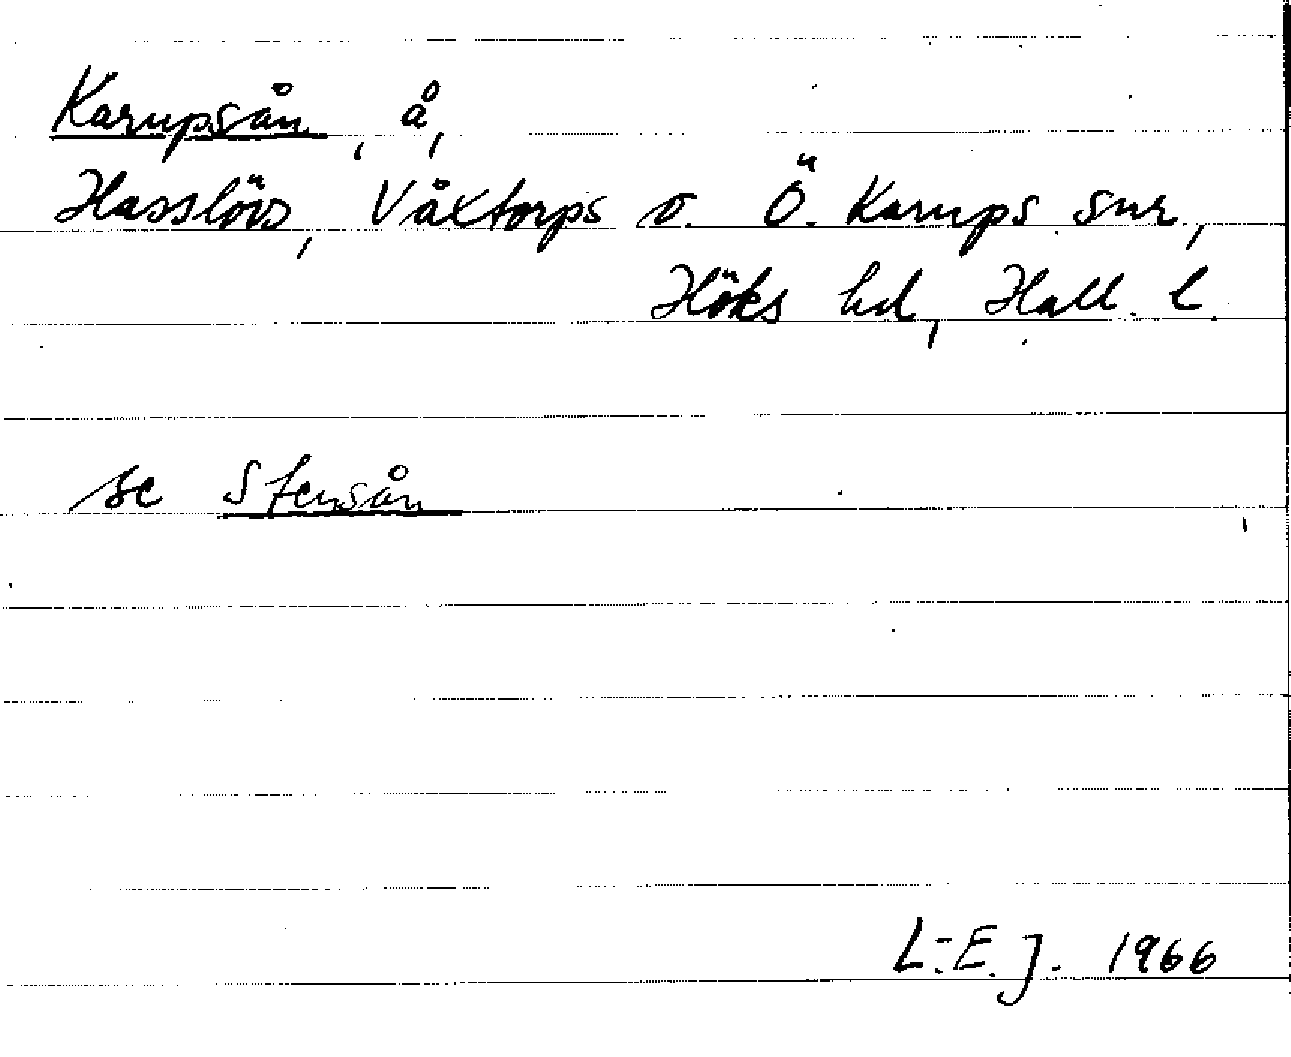 Karupsån, å,
Hasslövs, Våxtorps o. Ö. Karups snr,
Höks hd, Hall. l.
se Stensån
L-E. J. 1966